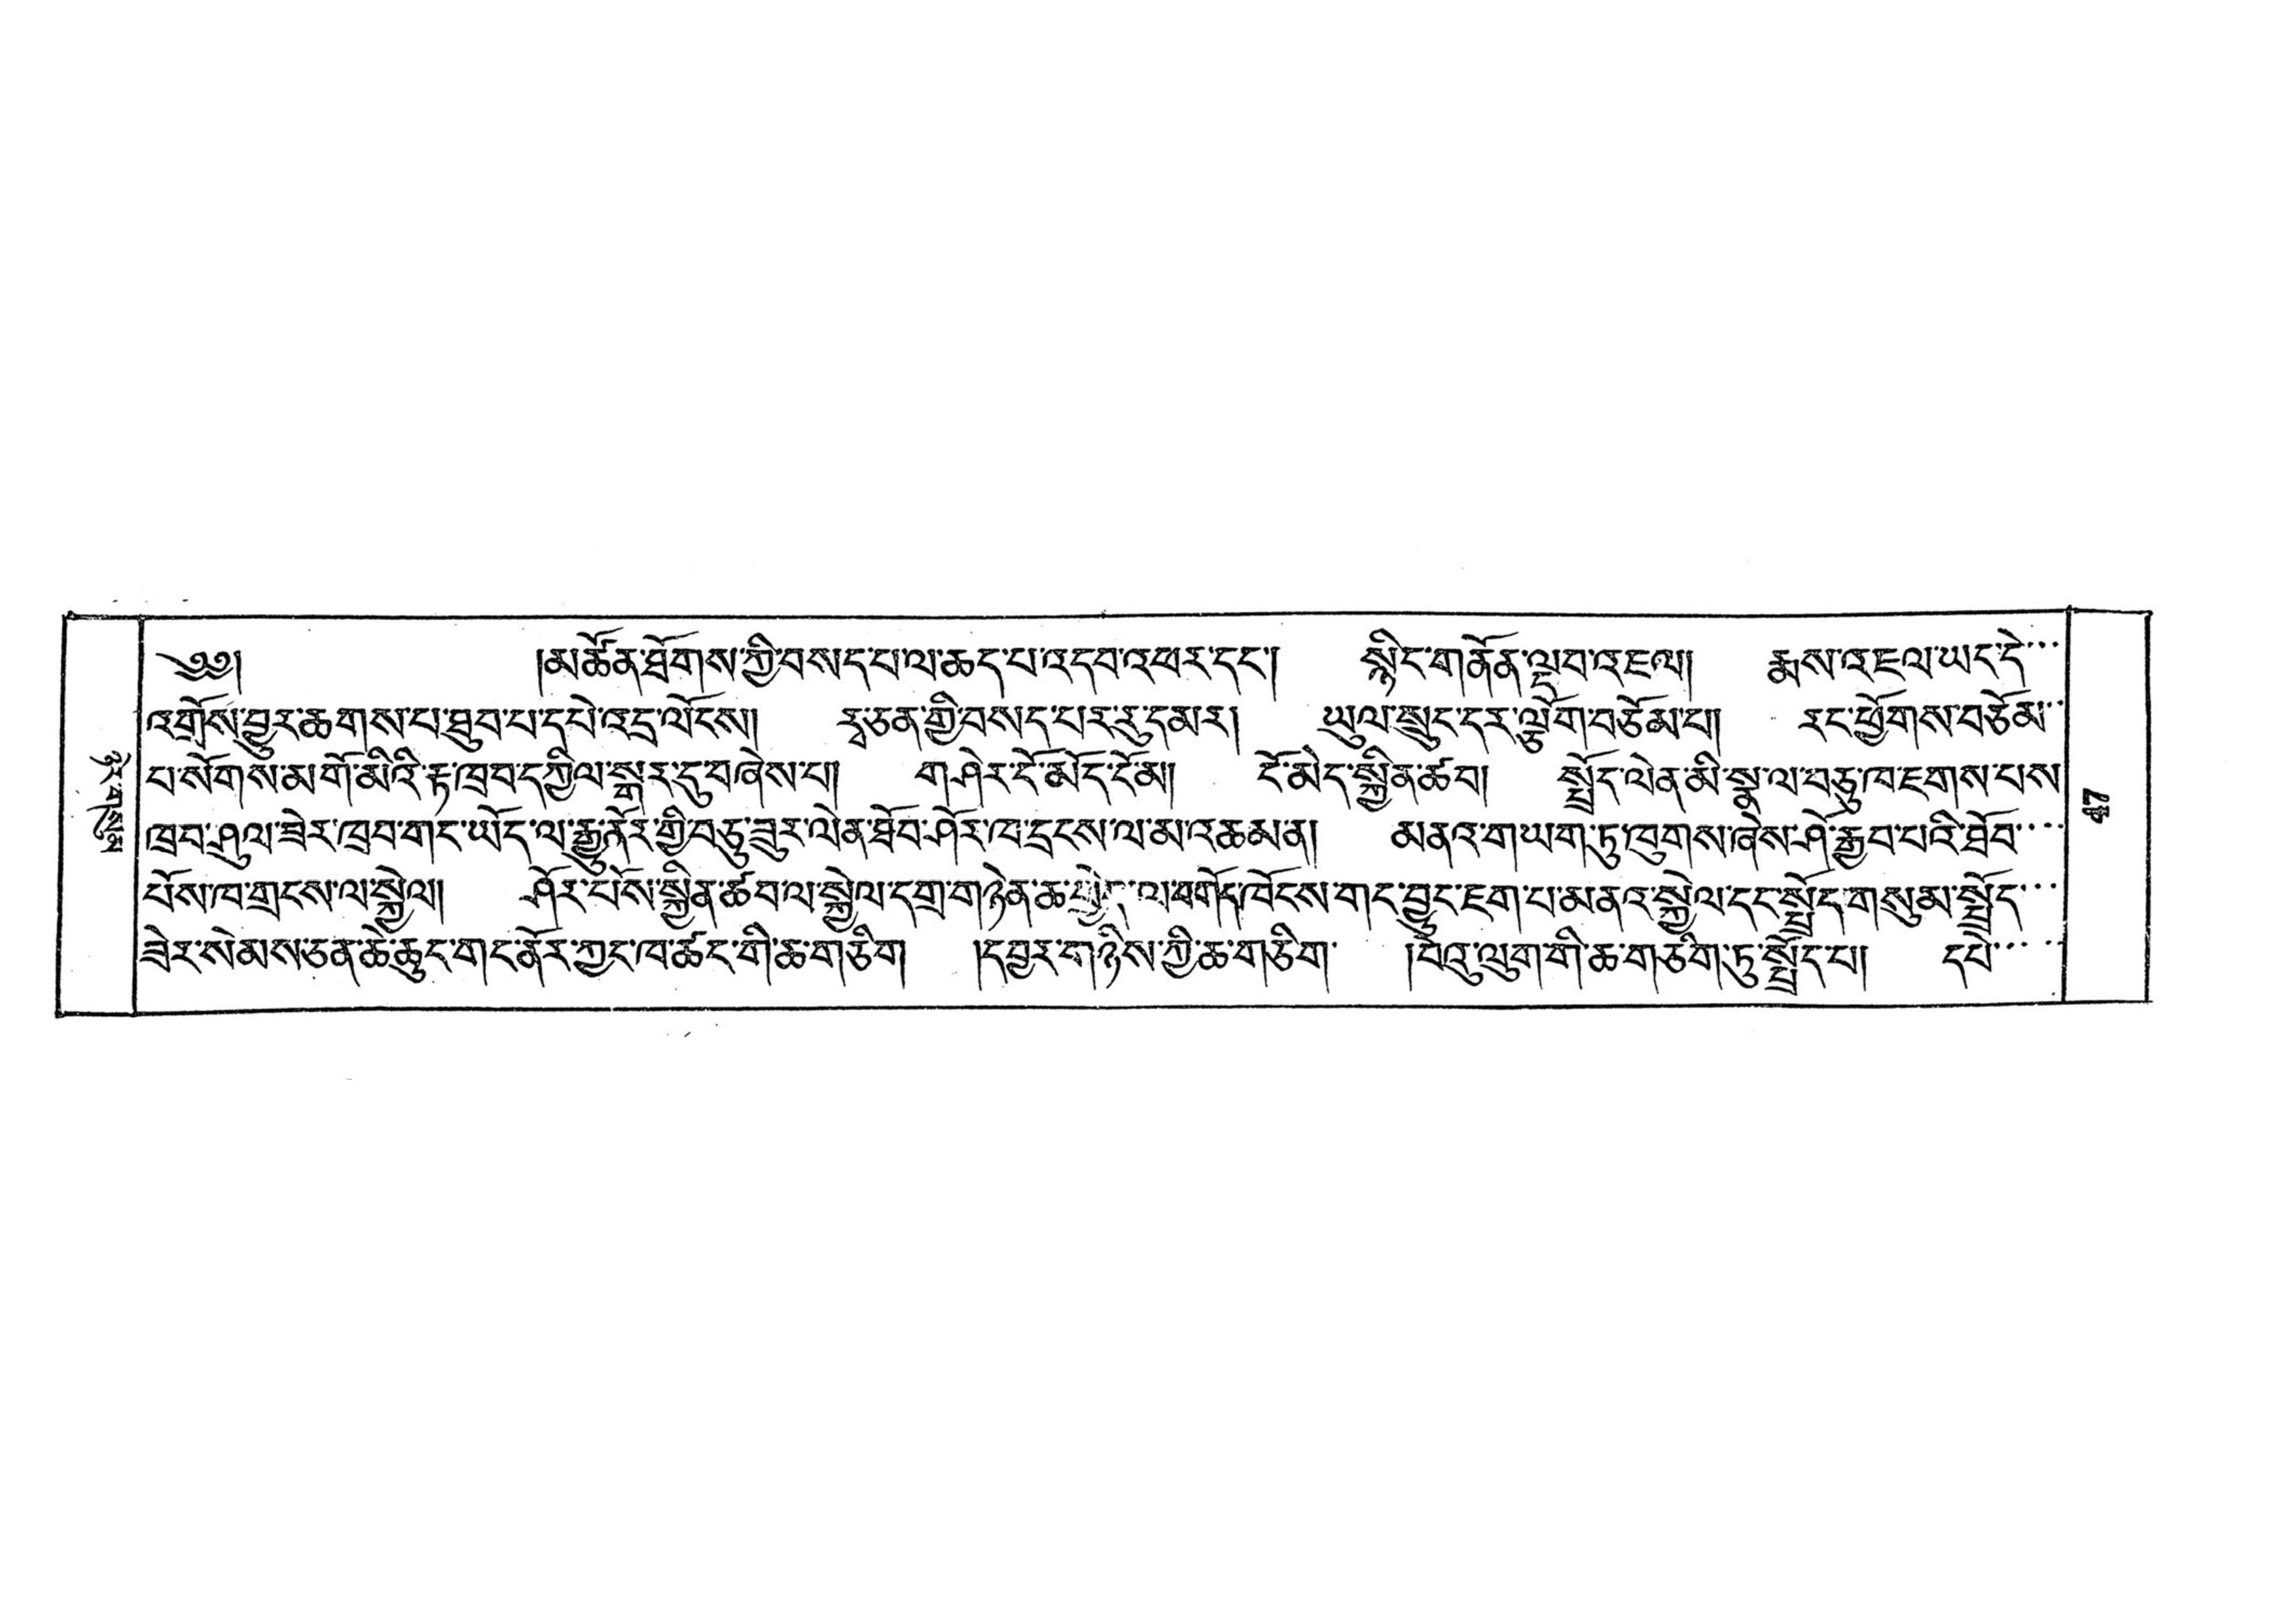 ༄༅། །མཚོན་ཐོགས་ཀྱི་བསད་པ་ལ་ཆད་པ་འདབ་འཕར་དང་། སྙིང་གནོན་ལྡབ་འཇལ། རྨས་འཇལ་ཡད་དེ་
འགྲོས་བྱུར་ཆགས་པ་ཐུབ་པ་དཔེ་འདྲ་ལོངས། རྭ་ཅན་གྱི་བསད་པར་རུ་དམར། ཡུལ་སྲུང་དར་ལྕོག་བཅོམ་པ། རང་ཕྱོགས་བཅོམ་
པ་སོགས་མགོ་མིའི་རྟ་ཁྲབ་དཀྱིལ་སྒར་དུ་བཞེས་པ། ག་ཤེར་ངོ་མོད་ངོམ། ངོ་མེད་སྐྱིན་ཚབ། སྤྲོད་ལེན་མི་སྣ་ལ་བཅུ་ཁ་ཇགས་པས
ཁྲབ་ཤུལ་ཟེར་ཁྲབ་གང་ཡོད་ལ་རྒྱུ་ནོར་གྱི་བཅུ་ཟུར་ལེན་ཐོབ་ཤོར་ཁ་དྲངས་ལ་མ་འཆམ་ན། མནའ་གཡག་ཏུ་ཁུགས་ཞེས་ཤོ་རྒྱབ་པའི་ཐོབ་
པོས་ཁ་གྲངས་ལ་སྐྱེལ། ཤོར་པོས་སྐྱིན་ཚབ་ལ་སྐྱེལ་དགྲ་གཉེན་ཆ་ ལ་ ཁོངས་གང་བྱུང་ཇག་པ་མནའ་སྐྱེལ་དང་སྤྲོད་གསུམ་སྤྲོད་
ཟེར་སེམས་ཅན་ཆེ་ཆུང་གང་ནོར་ཀྱང་ཁ་ཚང་གི་ཆ་གཅིག །དབྱར་གཉིས་ཀྱི་ཆ་གཅིག །བེའུ་ལུག་གི་ཆ་གཅིག་ཏུ་སྤྲོད་པ། དཔེ་